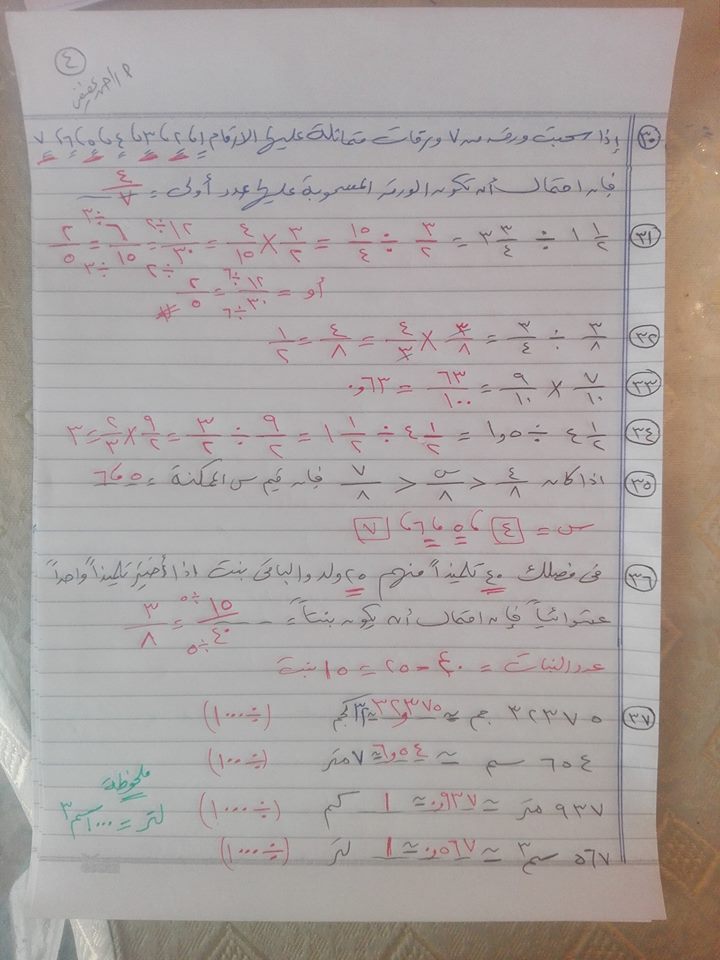 ٤
٣٠ إذا سحبت ورقة من ٧ ورقات متماثلة عليها الأرقام ١، ٢، ٣، ٤، ٥، ٦، ٧
فإن احتمال أن تكون الورقة المسحوبة عليها عدد أولى = ٤/٧
٣١ ١ ١/٢ ÷ ٣ ٣/٤ = ٣/٢ ÷ ١٥/٤ = ٣/٢ × ٤/١٥ = ١٢÷٢/٣٠÷٢ = ٦÷٣/١٥÷٣ = ٢/٥
أو = ١٢÷٦/٣٠÷٦ = ٢/٥ #
٣٢ ٣/٨ ÷ ٣/٤ = ٣/٨ × ٤/٣ = ٤/٨ = ١/٢
٣٣ ٧/١٠ × ٩/١٠ = ٦٣/١٠٠ = ٦٣و٠
٣٤ ٤ ١/٢ ÷ ٥و١ = ٤ ١/٢ ÷ ١ ١/٢ = ٩/٢ ÷ ٣/٢ = ٩/٢ × ٢/٣ = ٣
٣٥ اذا كان ٤/٨ < س/٨ < ٧/٨ فإن قيم س الممكنة = ٥، ٦
س = ٤، ٥، ٦، ٧
٣٦ فى فصلك ٤٠ تلميذاً منهم ٢٥ ولد والباقى بنت اذا أختير تلميذاً واحداً
عشوائياً فإن احتمال أن يكون بنتاً = ١٥÷٥/٤٠÷٥ = ٣/٨
عدد البنات = ٤٠ - ٢٥ = ١٥ بنت
٣٧ ٣٢٣٧٥ جم ≃ ٣٧٥و٣٢ ≃ ٣٢ كجم (÷ ١٠٠٠)
٦٥٤ سم ≃ ٥٤و٦ ≃ ٧ متر (÷ ١٠٠)
ملحوظة
٩٣٧ متر ≃ ٩٣٧و٠ ≃ ١ كم (÷ ١٠٠٠)
لتر = ١٠٠٠ سم٣
٥٦٧ سم٣ ≃ ٥٦٧و٠ ≃ ١ لتر (÷ ١٠٠٠)